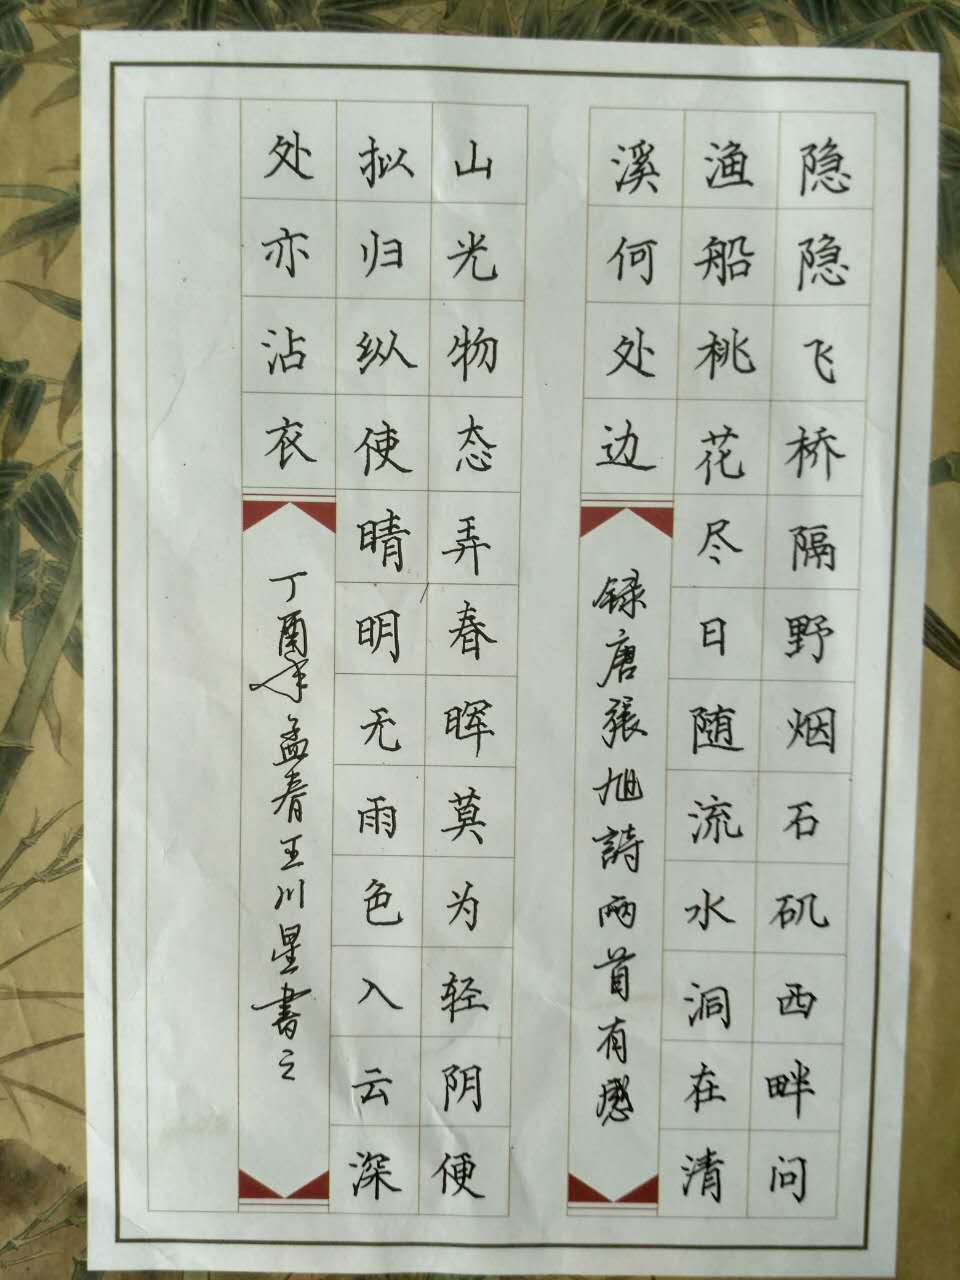 隐隐飞桥隔野烟石矶西畔问
渔船桃花尽日随流水洞在清
溪何处边
録唐張旭詩两首有感
山光物态弄春晖莫为轻阴便
拟归纵使晴明无雨色入云深
处亦沾衣
丁酉年孟春王川星書之